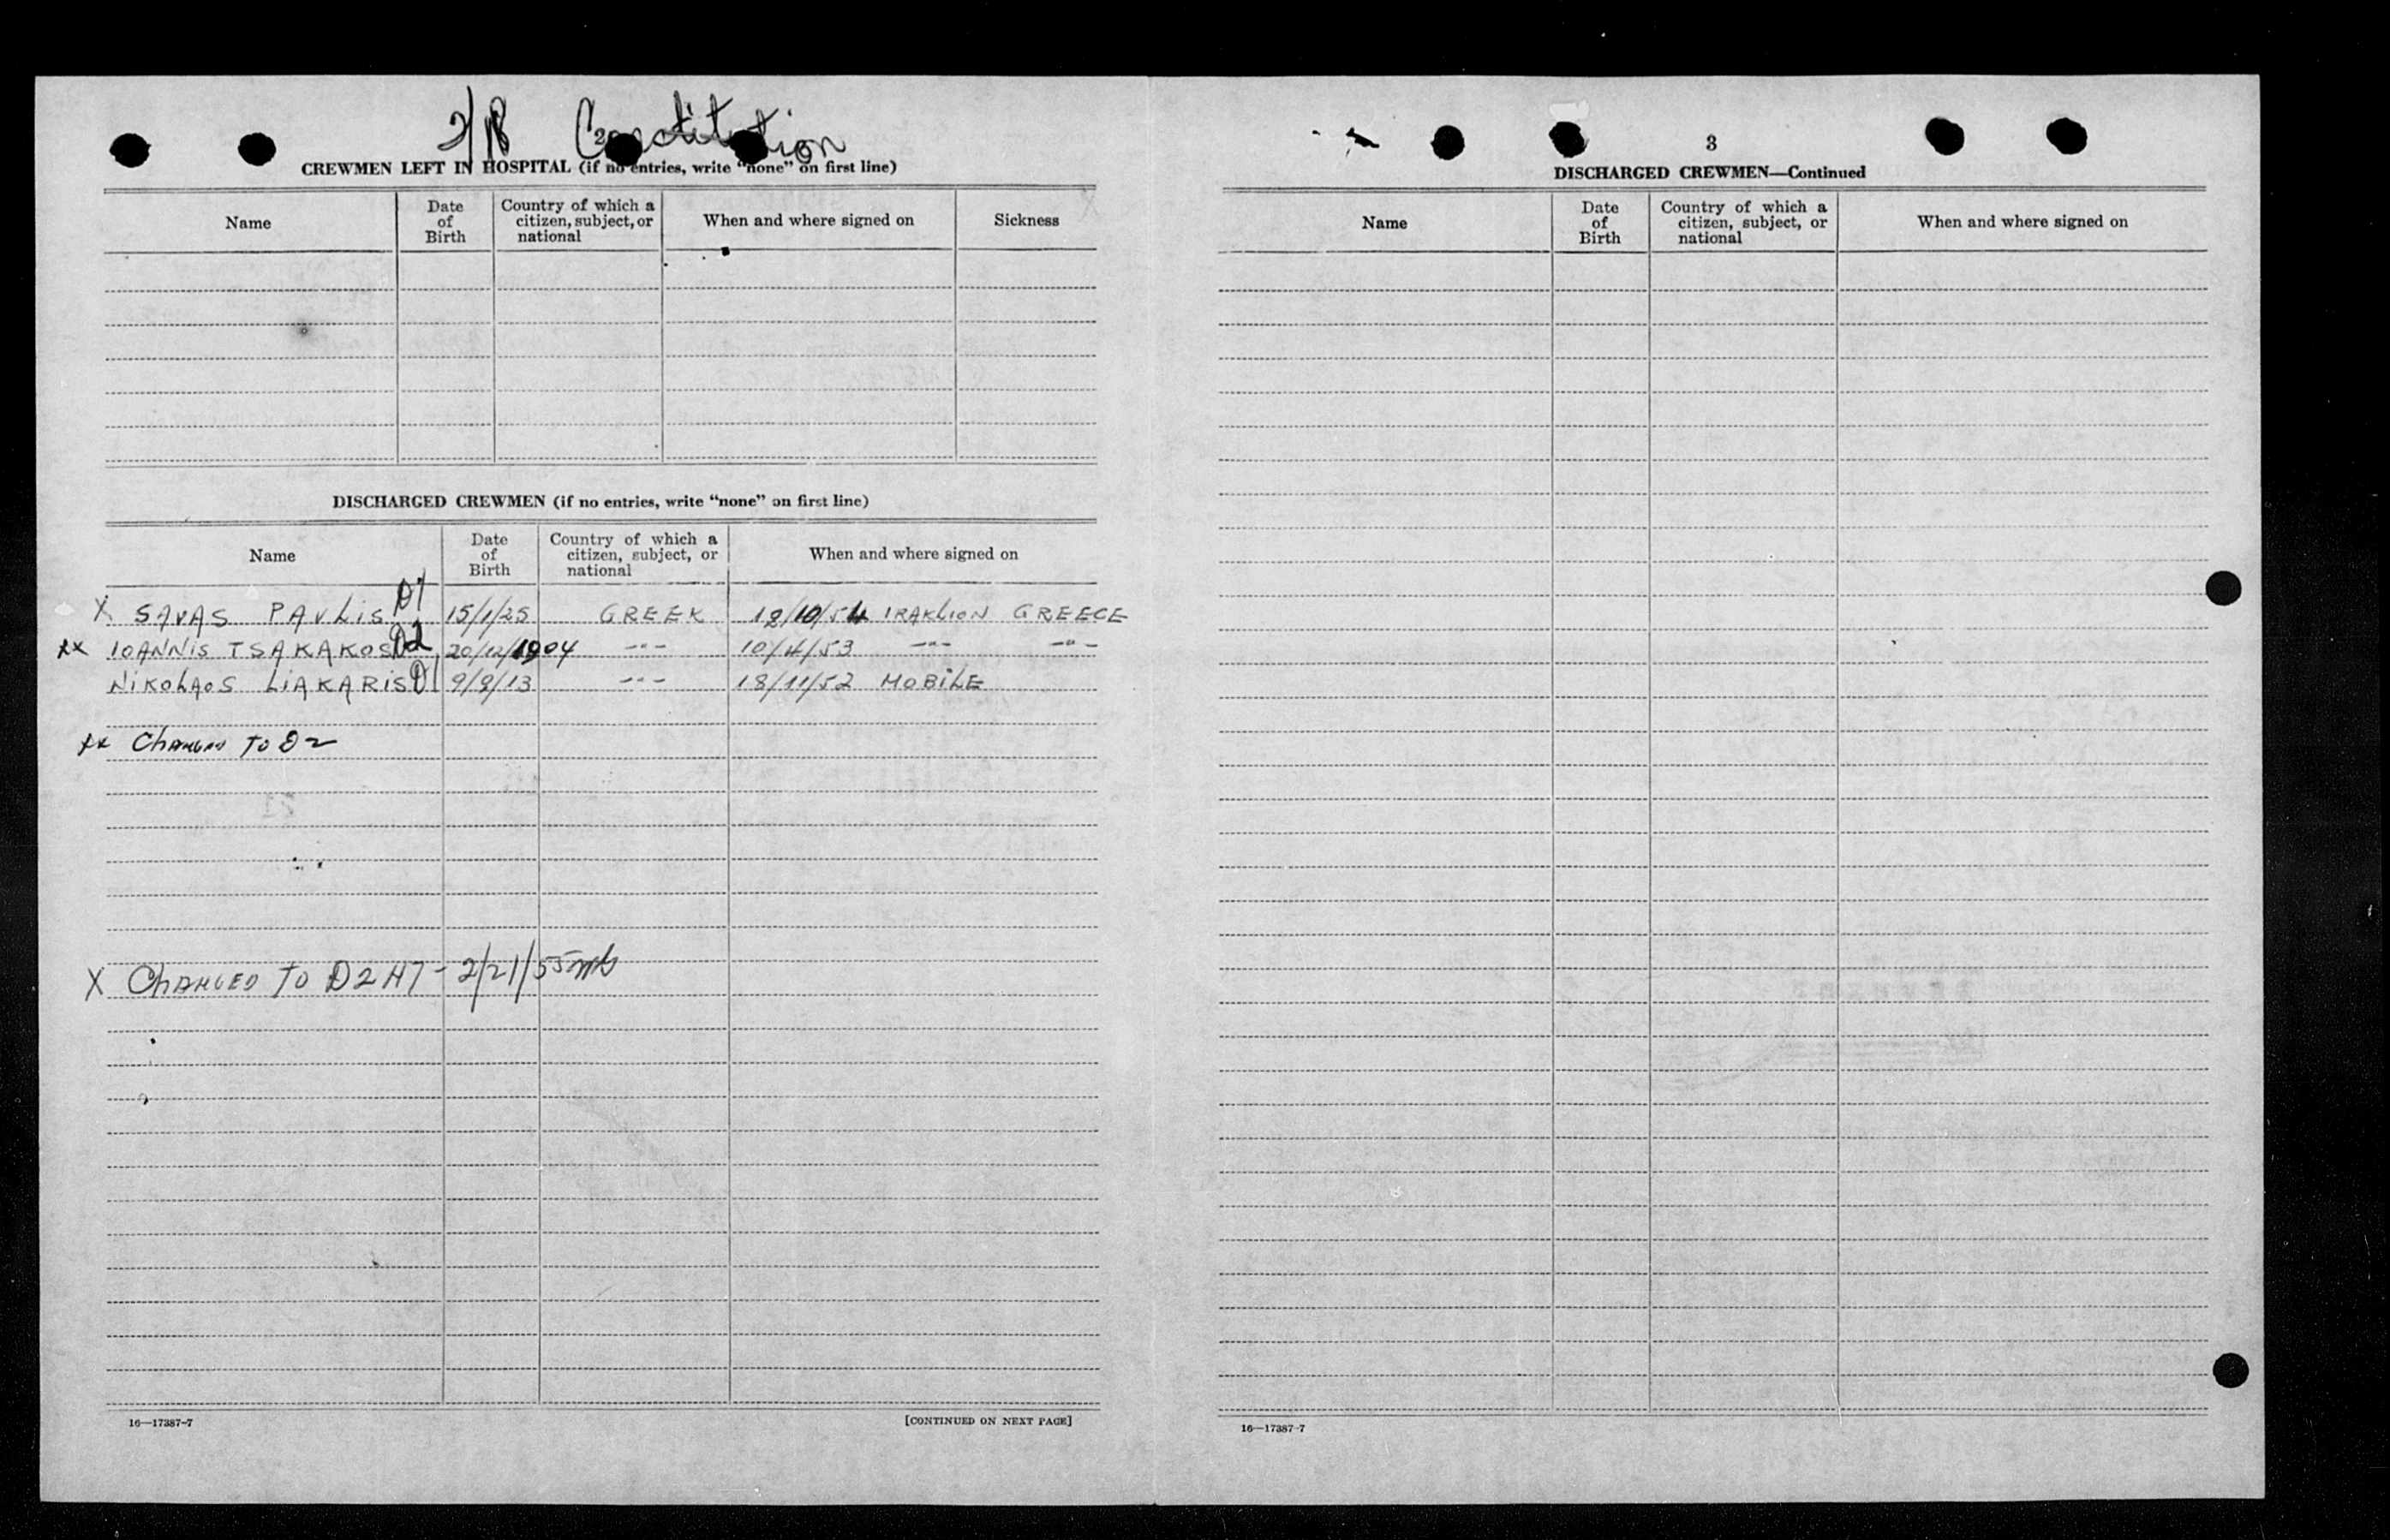 2/18 Constitution
2
CREWMEN LEFT IN HOSPITAL (if no entries, write “none” on first line)
Name
Date of Birth
Country of which a citizen, subject, or national
When and where signed on
Sickness
DISCHARGED CREWMEN (if no entries, write “none” on first line)
Name
Date of Birth
Country of which a citizen, subject, or national
When and where signed on
X SAVAS PAVLIS D1 15/1/25 GREEK 12/10/54 IRAKLION GREECE
XX IOANNIS TSAKAKOS D2 20/12/1904 -"- 10/4/53 -"- -"-
NIKOLAOS LIAKARIS D1 9/9/13 -"- 18/11/52 MOBILE
XX Changed To D2
X CHANGED TO D2 AT - 2/21/55
16—17387-7
[CONTINUED ON NEXT PAGE]
3
DISCHARGED CREWMEN—Continued
Name
Date of Birth
Country of which a citizen, subject, or national
When and where signed on
16—17387-7